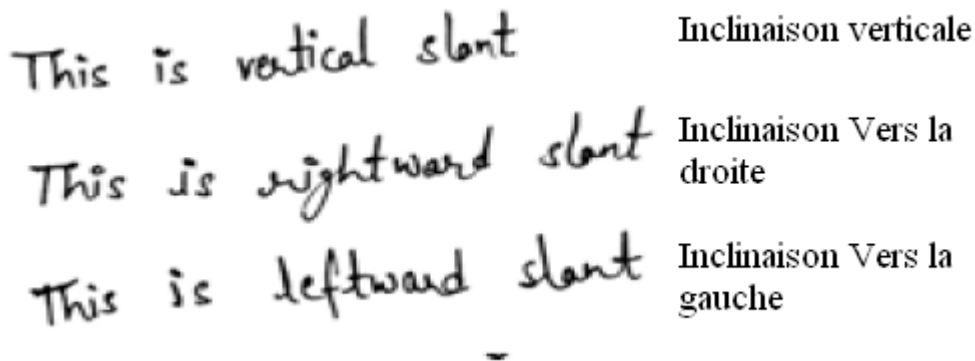 This is vertical slant Inclinaison verticale
This is rightward slant Inclinaison Vers la
droite
This is leftward slant Inclinaison Vers la
gauche